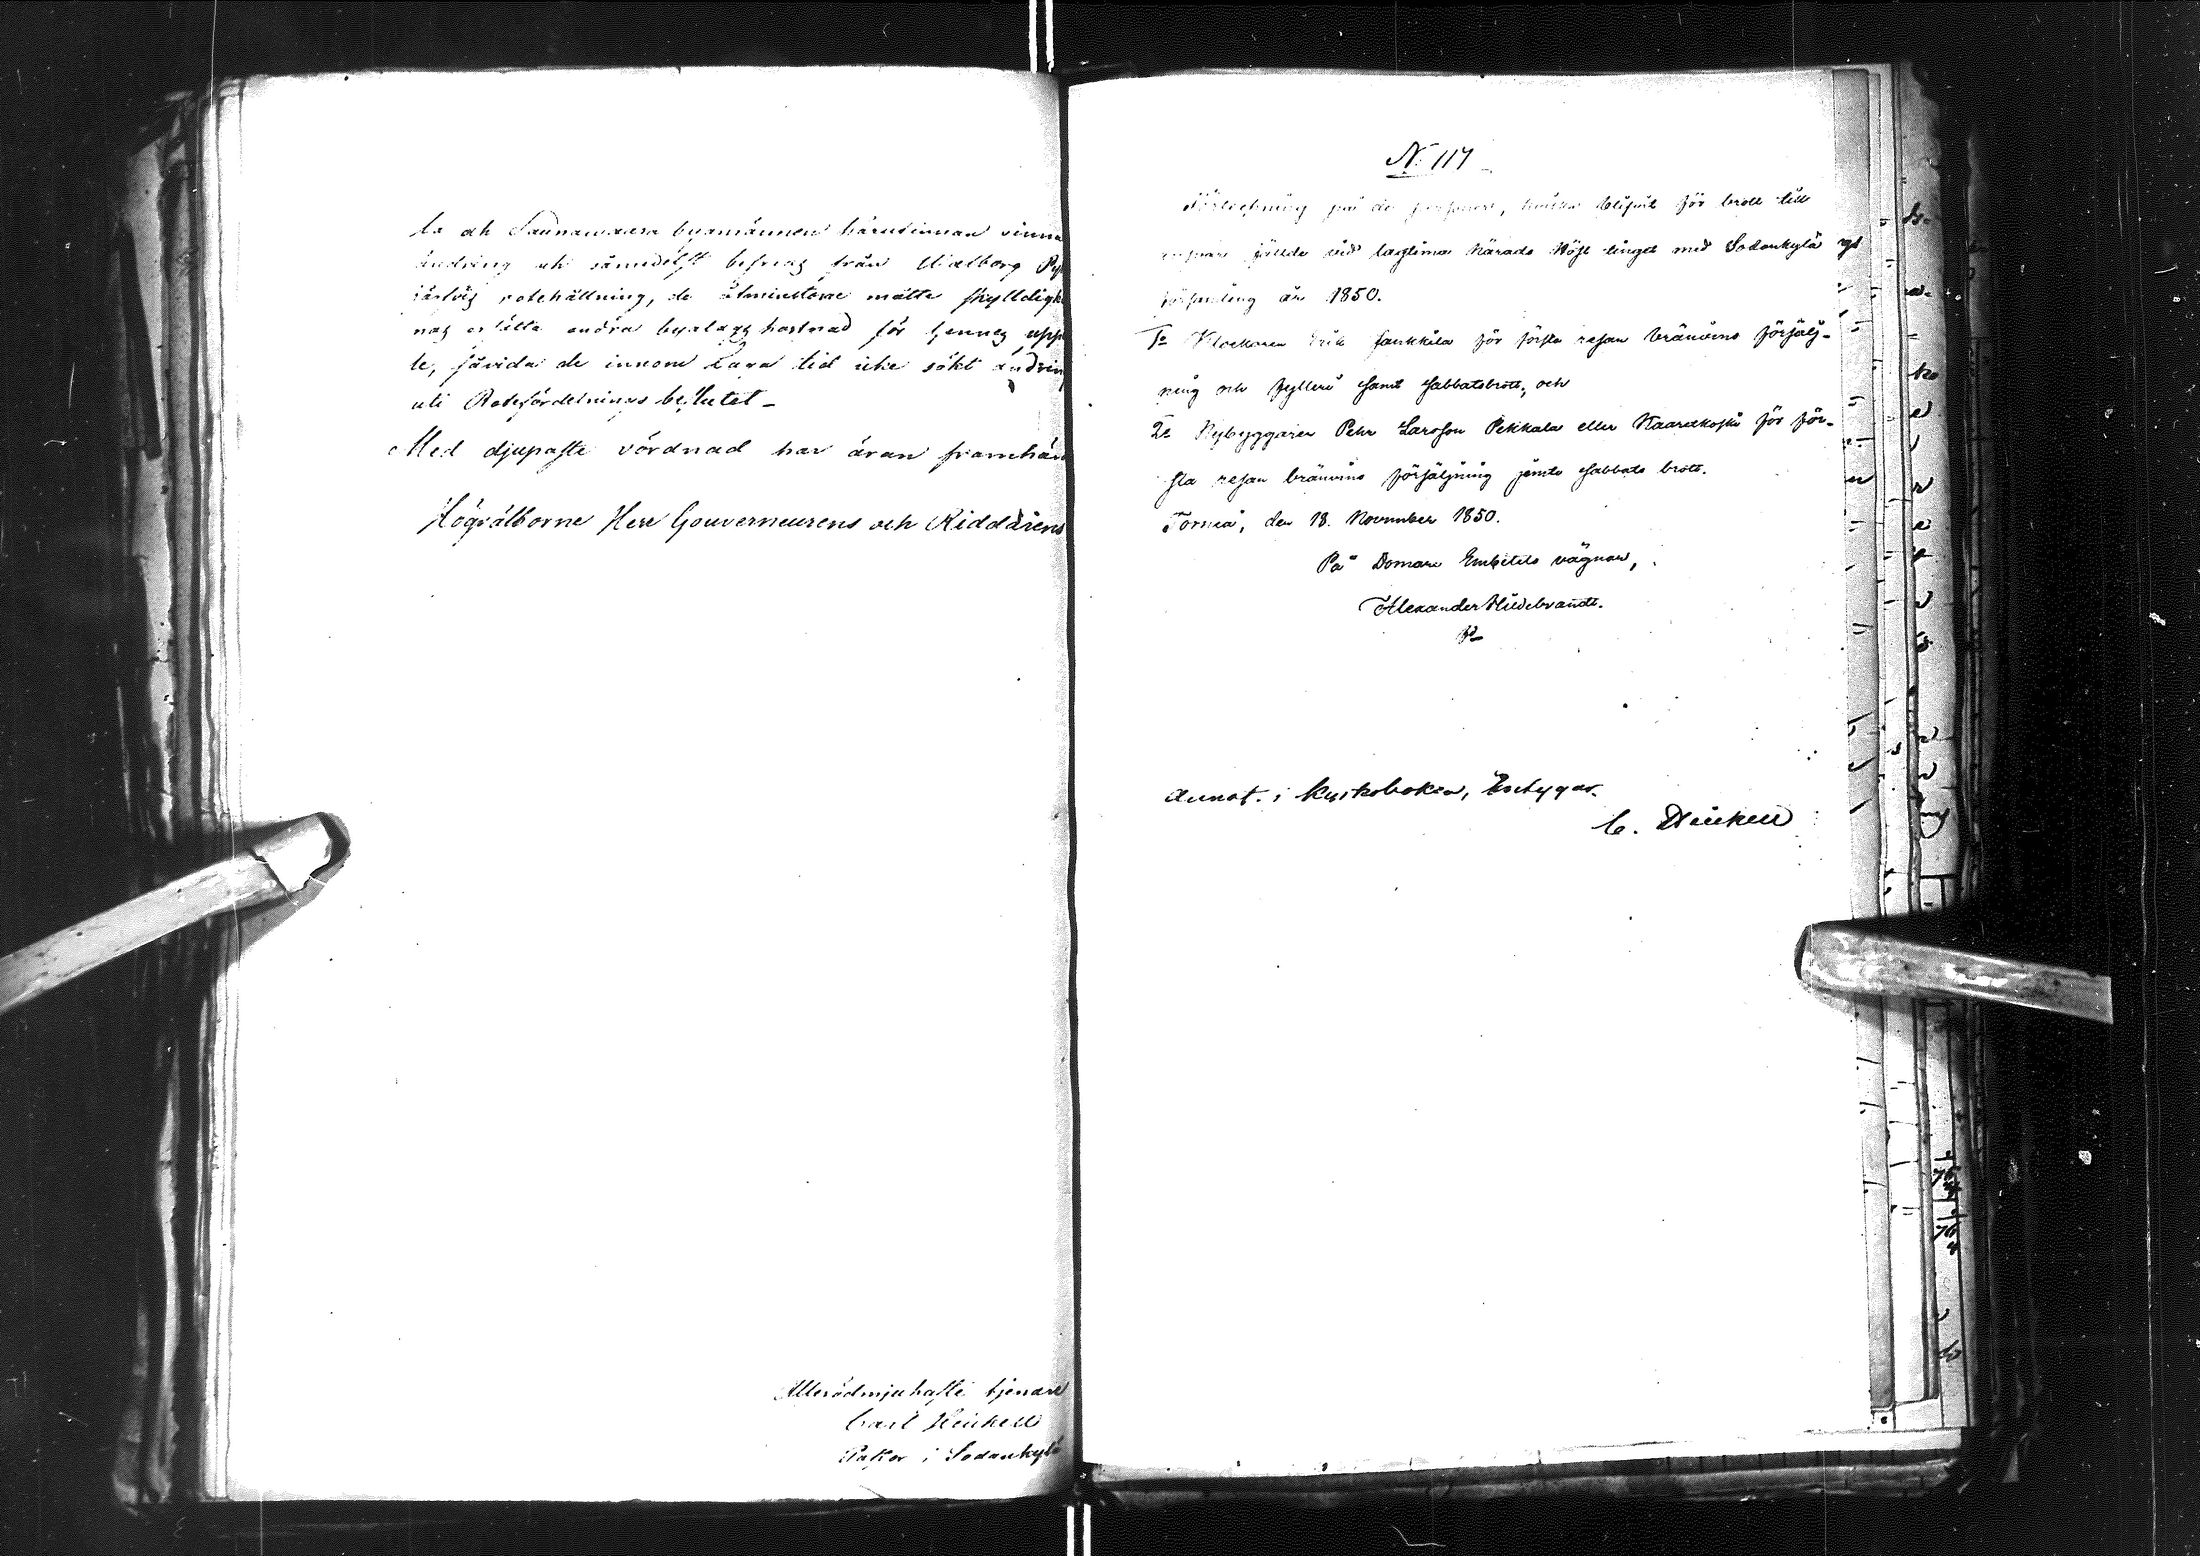 la och Saunawaara byamännen härutinnan vinna
ändring och såmedelst befrias från Wialborg
rotehållning, de åtminstone måtte skylldigk
nas ersätta andra byalags kostnad för hennes upp
te, såvida de innom Laga tid icke sökt ändrin
uti Rotefördelnings beslutet_
Med djupaste vördnad har äran framhär
Högvälborne Herr Gouverneurens och Riddarens
Allerödmjukaste tjenare
Carl Heickell
Pastor i Sodankylä
N: 117
Förteckning på de personer, hvilka blifvit för brott till
ansvar fällde vid lagtima Härads Höste tinget med Sodankylä
församling år 1850.
1o Klockaren Erik Jankkila för första resan bränvins försälj-
ning och fylleri samt sabbatsbrott, och
2o Nybyggaren Pehr Larsson Pekkala eller Kaaretkoski för för-
sta resan bränvins försäljning jemte sabbats brott.
Torneå, den 18. November 1850.
På Domare Embetets vägnar,
Alexander Hildebrandt.
Annot. i kyrkoboken, betygar
C. Heickell